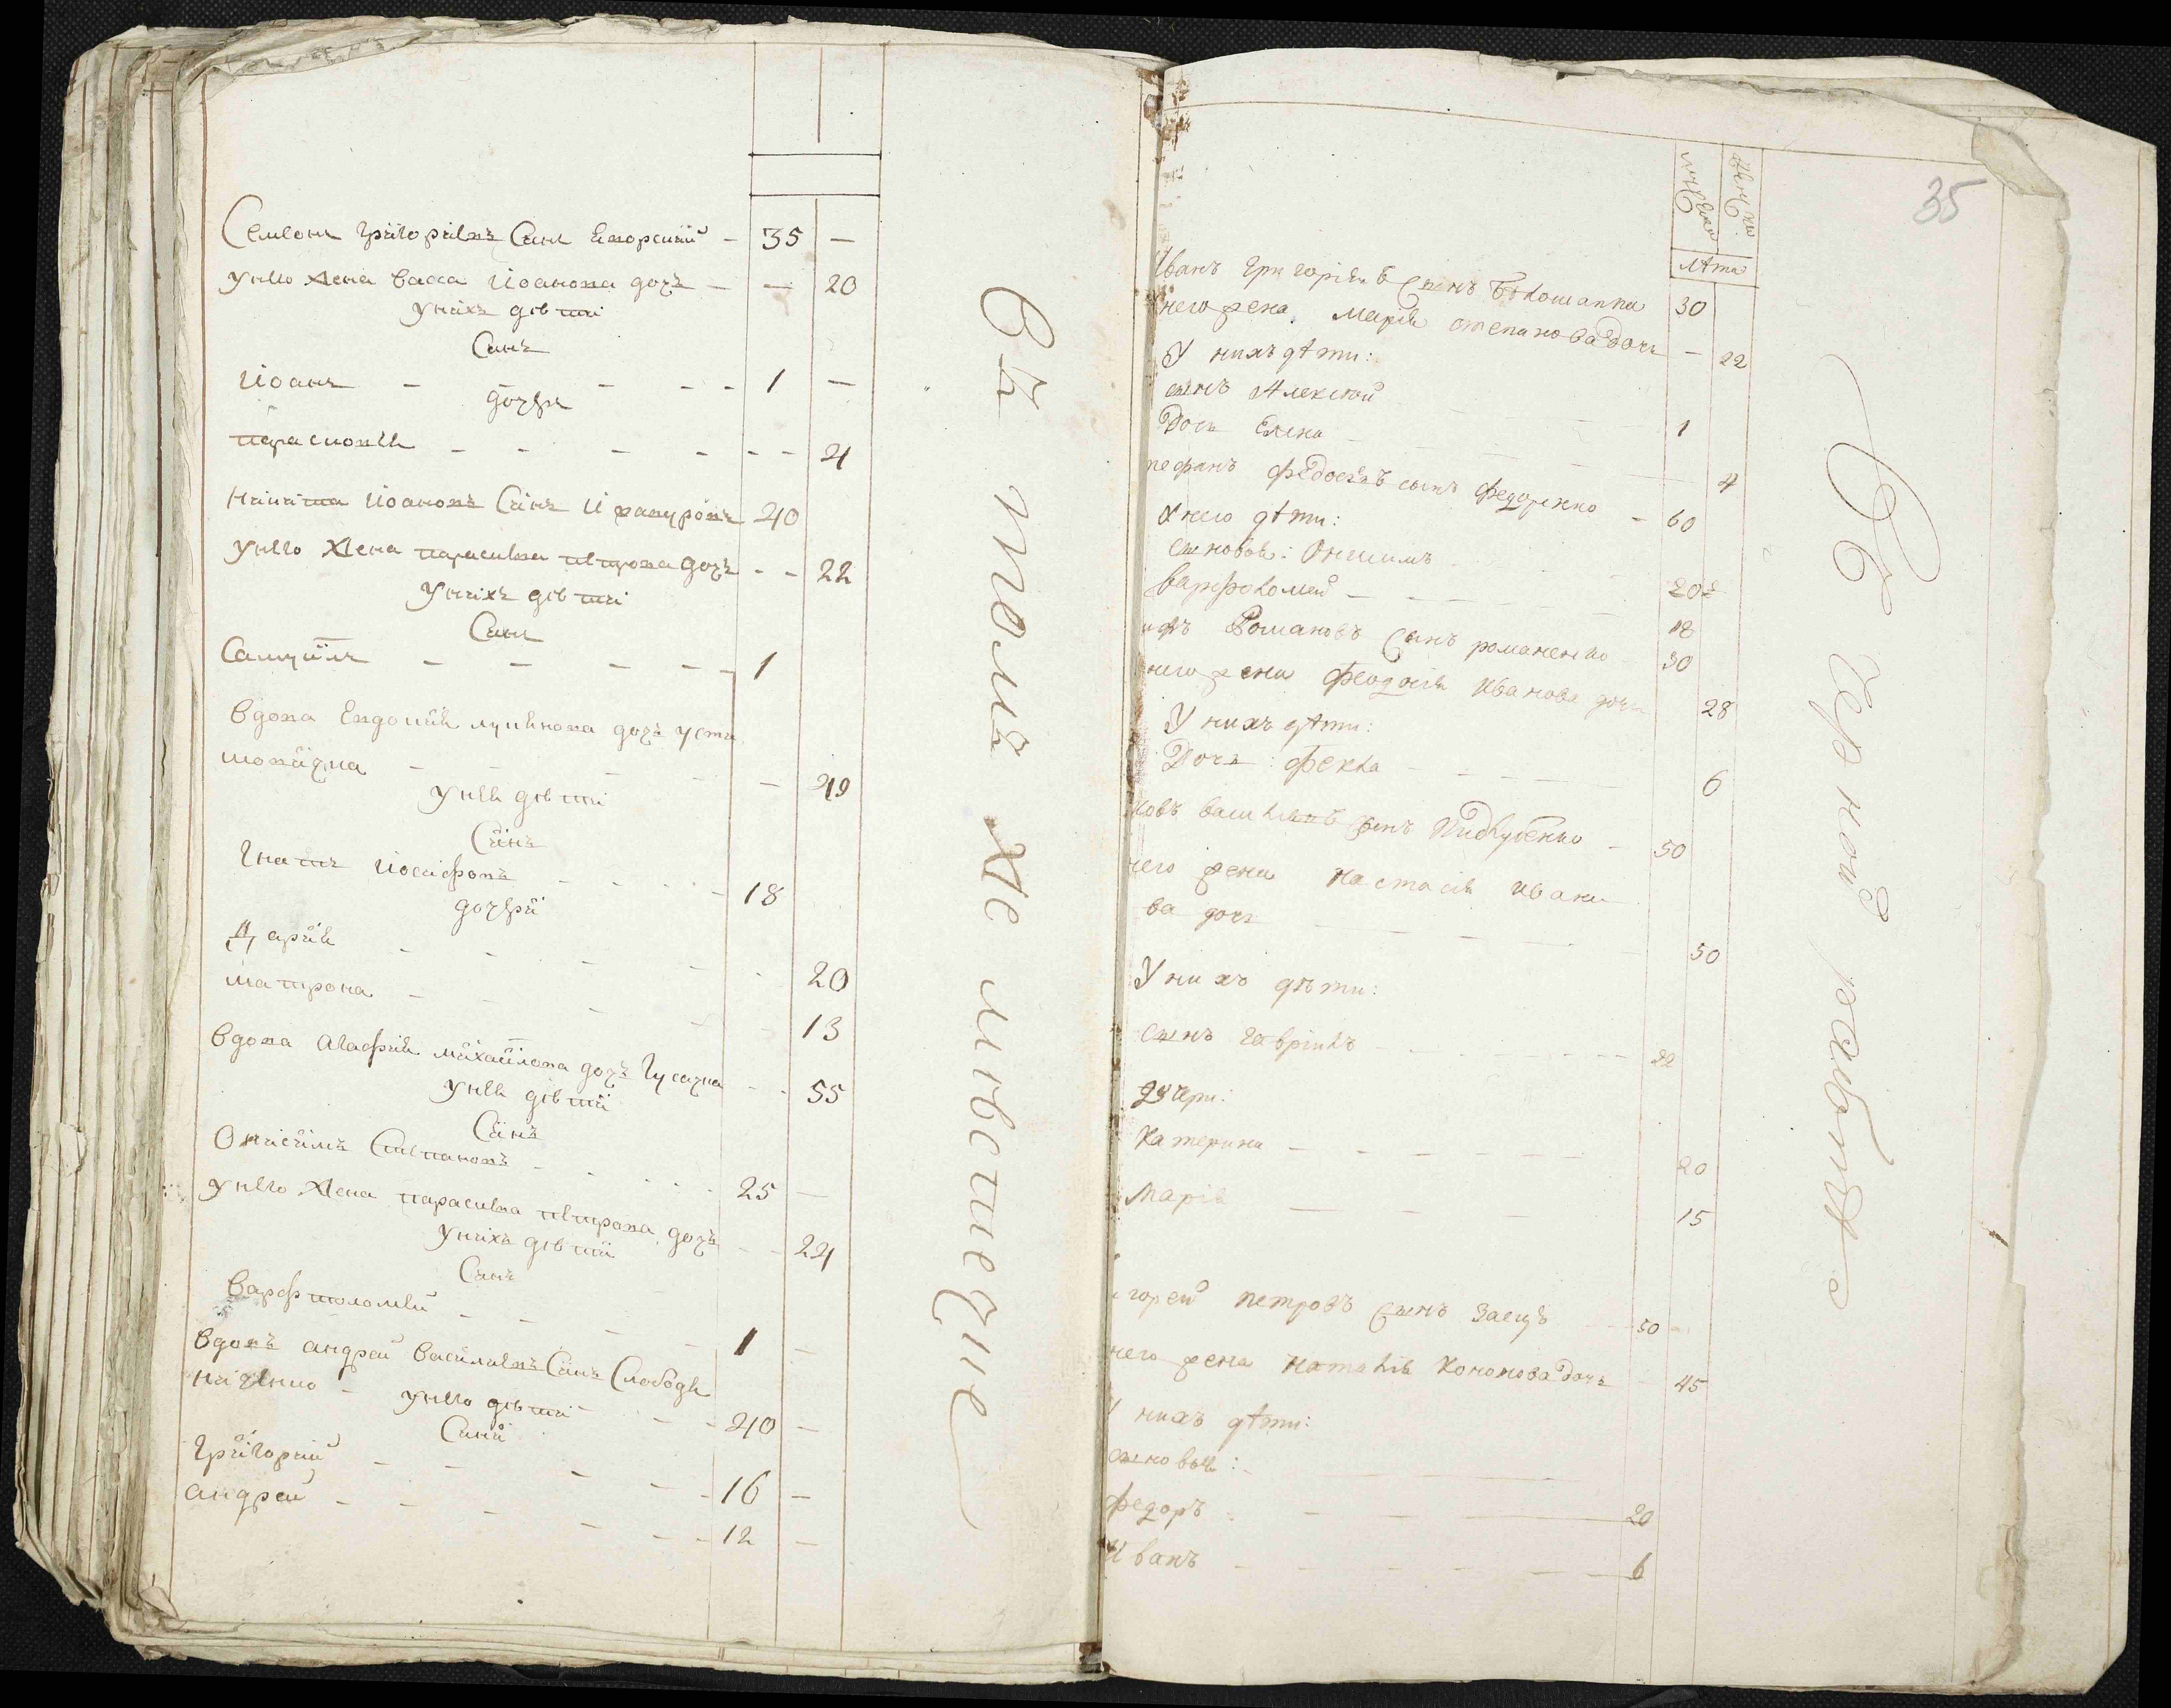 Семеонъ Григориевъ Синъ
35 —
У него жена васса Иоанова дочь — — 20
У нихъ дѣти
Синъ
Иоанъ — — — — — 1 —
дочери
парасковея — — — — — — 4
Никита Иоановъ Синъ 40
У него жена параскева петрова дочь - - 22
У нихъ дѣти
Синъ
Самуилъ — — — — — 1
Вдова Евдокия дочь усти
— — — — — 49
У неи дѣти
Синъ
Игнатъ Иосифовъ - - - - 18
дочери
Дария - - - - - 20
матрона — — - - - 13
Вдова Агафия михаилова дочь Гусачка - - 55
У неи дѣти
Синъ
Онисимъ Степановъ - - - - - 25 —
У него жена параскева петрова дочь - - 24
У нихъ дѣти
Синъ
Варфтоломей - - - - 1 —
Вдовъ андрей Василиевъ Синъ Слободя
ниченко - - - - 40 —
У него дѣти
Сини
Григорий — — — — - 16 —
андрей - - - - - - 12 —
Въ томъ же мѣстечке
35
мужеска женска
лѣта
Иванъ григориевъ Сынъ 30
него жена марія степанова дочь — 22
У нихъ дѣти:
сынъ Алексѣй 1
Дочь Елена 4
федосѣевъ сынъ федоренко - 60
У него дѣти:
сыновья: Онисимъ 20
Варфоломей — — — 18
Романовъ Сынъ романенко 30
него жена Феодосія Иванова дочь 28
У нихъ дѣти:
Дочь: фекла - - - — 6
васильевъ Сынъ - 50
него жена настасія Ивано
ва дочь — — — 50
У нихъ дѣти:
сынъ гавріилъ - - - - - 22
дочери:
Катерина — - - - - 20
Марія — — — 15
горей петровъ Сынъ Заецъ 50 -
него жена наталія Кононова дочь - 45
У нихъ дѣти:
сыновья: -
федоръ - - — 20
Иванъ - - - - — 6
Въ черной работѣ